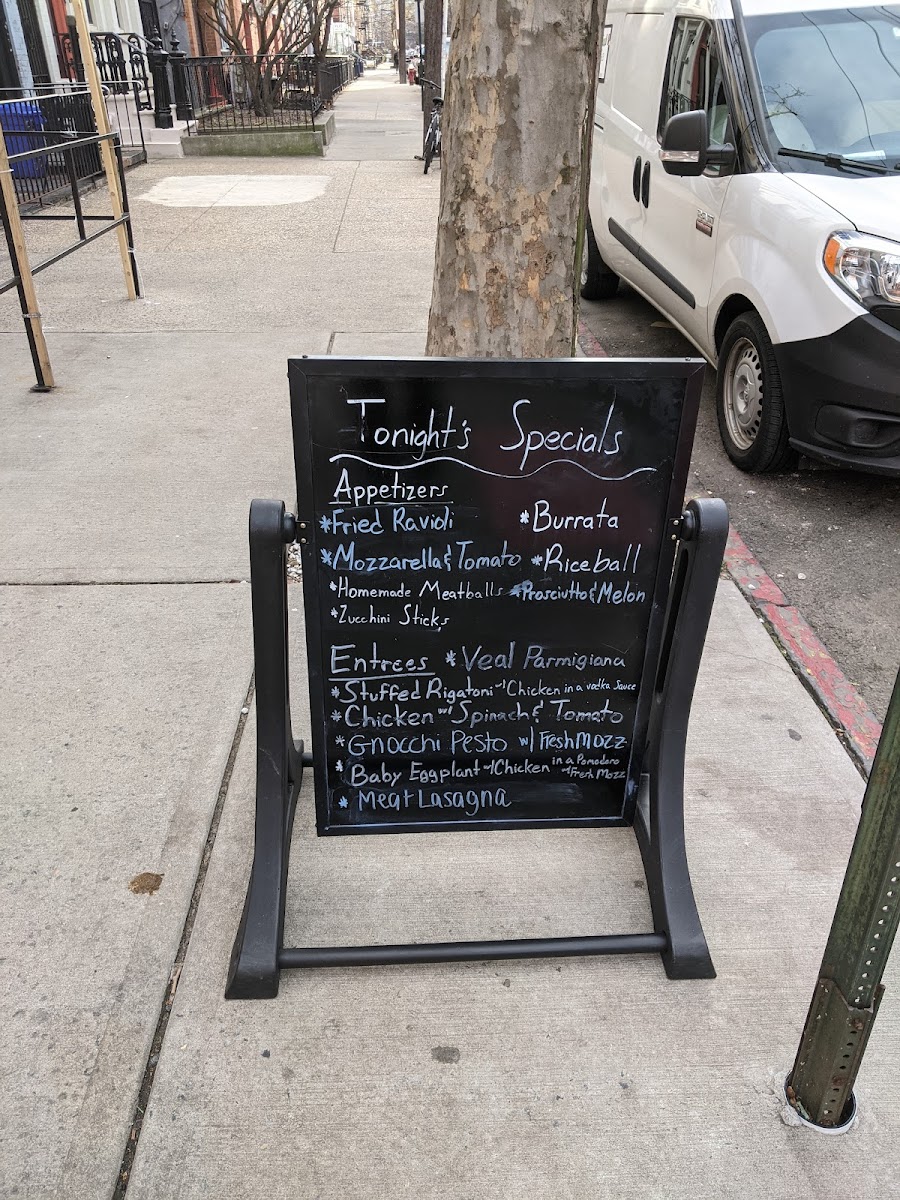 Tonight's Specials
Appetizers
*Fried Ravioli *Burrata
*Mozzarella & Tomato *Riceball
*Homemade Meatballs *Prosciutto & Melon
*Zucchini Sticks
Entrees *Veal Parmigiana
*Stuffed Rigatoni w/ Chicken in a vodka Sauce
*Chicken w/ Spinach & Tomato
*Gnocchi Pesto w/ Fresh Mozz
*Baby Eggplant w/ Chicken in a Pomodoro w/ Fresh Mozz
*Meat Lasagna